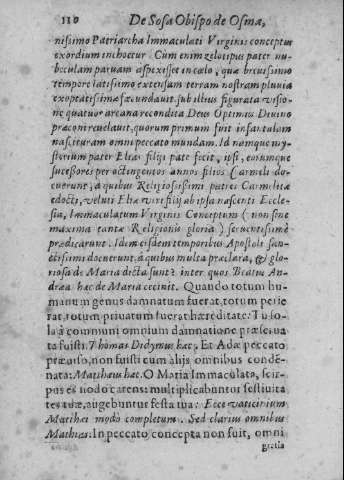 110 De Sosa Obispo de Osma,
nissimo Patriarcha Immaculati Virginis conceptus
exordium inchoetur. Cùm enim zelotipus pater nu-
beculam paruam aspexisset in cœlo, qua breuissimo
tempore latissimo extensum terram nostram pluuia
exoptatissima fæcundauit. sub illius figurata visio-
ne quatuor arcana recondita Deus Optimus Diuino
præconi reuelauit, quorum primum fuit infantulam
nascituram omni peccato mundam. Id namque my-
sterium pater Elias filijs pate fecit, ipsi, eorumque
sucessores per octingentos annos filios Carmeli do-
cuerunt, à quibus Religiosissimi patres Carmelitæ
edocti, veluti Eliæ viri filij ab ipsa nascenti Eccle-
sia, Immaculatum Virginis Conceptum (non sine
maxima tantæ Religionis gloria) feruentissimè
prædicarunt. Idem eisdem temporibus Apostoli san-
ctissimi docuerunt, à quibus multa præclara, & glo-
riosa de Maria dicta sunt: inter quos Beatus An-
dræa hæc de Maria cecinit. Quando totum hu-
manum genus damnatum fuerat, totum perie
rat, totum priuatum fuerat hæreditate: Tu so-
la à communi omnium damnatione præserua
ta fuisti. Thomas Didymus hæc, Et Adæ peccato
præuiso, non fuisti cum alijs omnibus conde-
nata: Matthæus hæc. O Maria Immaculata, scir-
pus es nodo carens: multiplicabuntur festiuita
tes tuæ, augebuntur festa tua: Ecce vaticinium
Matthæi modo completum. Sed clarius omnibus
Mathias. In peccato concepta non fuit, omni
gratia